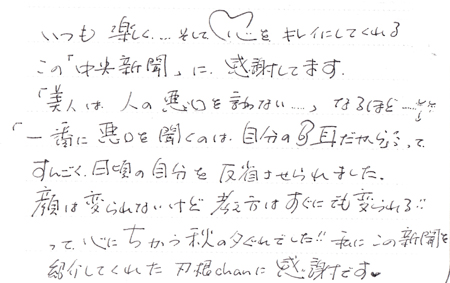 いつも 楽しく‥‥そして 心を キレイにしてくれる
この「中央新聞」に、感謝してます.
「美人は 人の悪口を言わない‥‥」なるほど‥‥
「一番に悪口を聞くのは、自分の耳だから」って
すんごく、日頃の自分を 反省させられました.
顔は変えられないけど 考え方はすぐにでも変えられる!!
って、心にちかう秋の夕ぐれでした!! 私に この新聞を
紹介してくれた chanに 感謝です♥